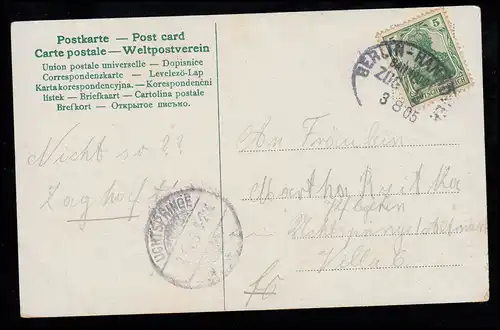 Postkarte — Post card
Carte postale — Weltpostverein
Union postale universelle — Dopisnice
Correspondenzkarte — Levelező-Lap
Karta korespondencyjna. — Korespondenční
lístek — Briefkaart — Cartolina postale
Brefkort — Открытое письмо.
5
BERLIN-HAN
ZUG
3 8 05
Nicht so ??
Zaghaft
UCHTSPRINGE
An Fräulein
Martha
Uchtspringe
Villa 6
fr